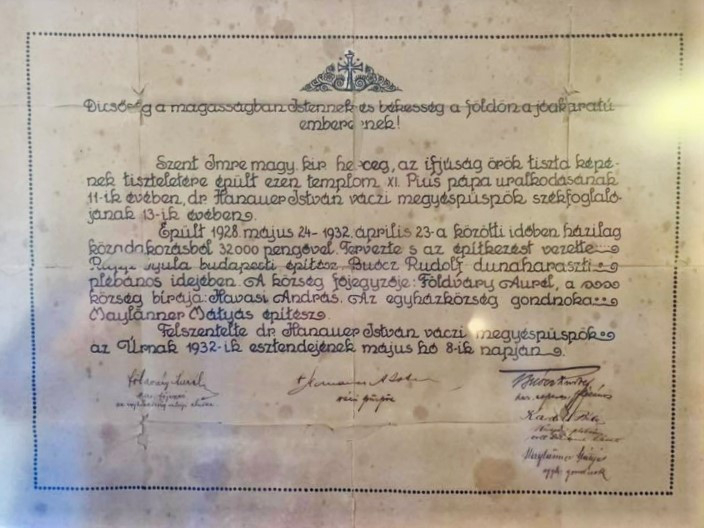 Dicsőség a magasságban Istennek és békesség a földön a jóakaratú
embereknek!
Szent Imre magy. kir. herceg, az ifjúság örök tiszta képé-
nek tiszteletére épült ezen templom XI. Pius pápa uralkodásának
11-ik évében, dr. Hanauer István váczi megyéspüspök székfoglaló-
jának 13-ik évében.
Épült 1928 május 24- 1932. április 23-a közötti időben házilag
közadakozásból 32000 pengővel. Tervezte s az építkezést vezette
Gyula budapesti építész. Buócz Rudolf dunaharaszti
plébános idejében. A község főjegyzője: Földváry Aurél, a
község bírája: Havasi András. Az egyházközség gondnoka:
Maylänner Mátyás építész.
Felszentelte dr. Hanauer István váczi megyéspüspök
az Úrnak 1932-ik esztendejének május hó 8-ik napján.
Földváry Aurél
váci püspök
Maylänner Mátyás
egyh. gondnok